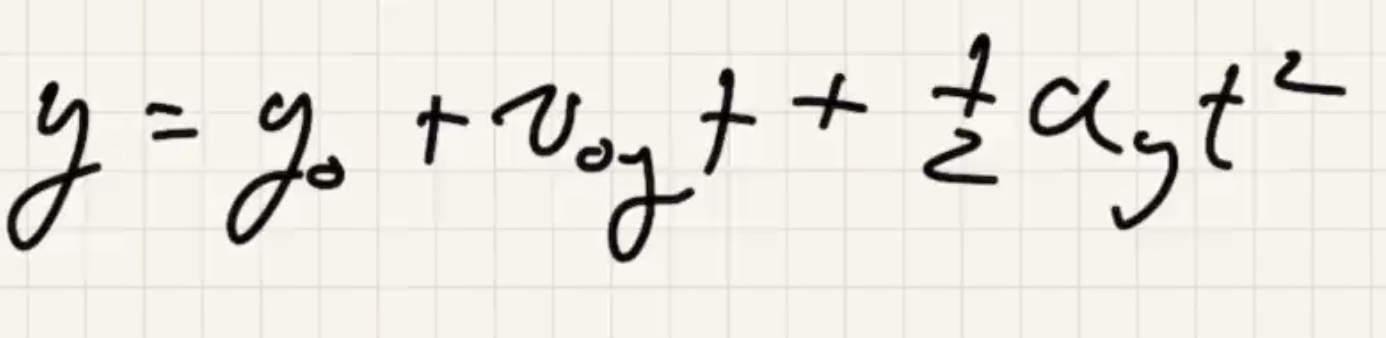 y = y₀ + v₀ᵧt + ½aᵧt²